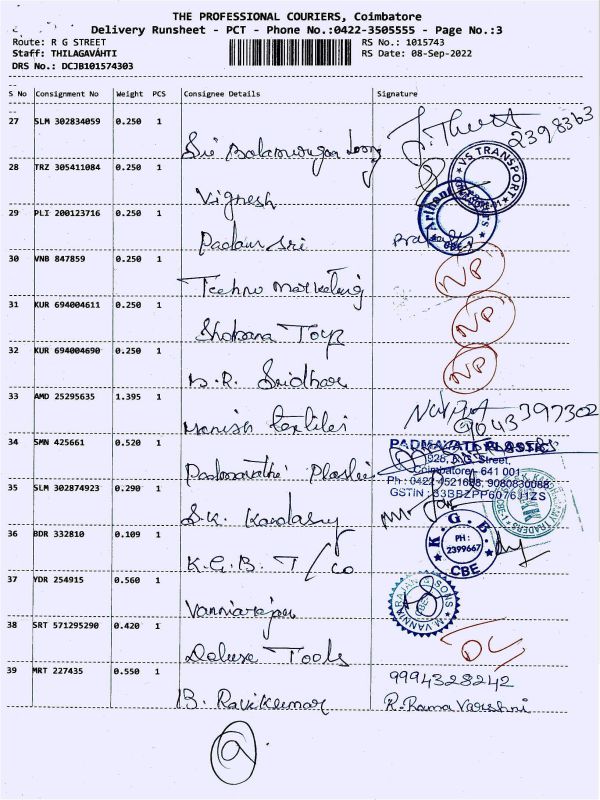 THE PROFESSIONAL COURIERS, Coimbatore
Delivery Runsheet - PCT - Phone No.:0422-3505555 - Page No.:3
Route: R G STREET RS No.: 1015743
Staff: THILAGAVAHTI RS Date: 08-Sep-2022
DRS No.: DCJB101574303
S No Consignment No Weight PCS Consignee Details Signature
27 SLM 302834059 0.250 1
2398363
Sri Balamurugan
VS TRANSPORT
28 TRZ 305411084 0.250 1
Vignesh
Arihant
29 PLI 200123716 0.250 1
Sri
30 VNB 847859 0.250 1
Techno Marketing NP
31 KUR 694004611 0.250 1
Shobana Toys NP
32 KUR 694004690 0.250 1
Sridhar NP
33 AMD 25295635 1.395 1
Manish Textiles
34 SMN 425661 0.520 1
PADMAVATI PLASTIC
928, R.G. Street
Coimbatore - 641 001
Padmavathi Plastic
35 SLM 302874923 0.290 1
S.K.
36 BDR 332810 0.109 1
K.G.B. T/Co
K. G. B.
PH :
2399667
CBE
37 YDR 254915 0.560 1
Vanniarajan
M. VANNIARAJAN & SONS
38 SRT 571295290 0.420 1
Deluxe Tools
39 MRT 227435 0.550 1
9994328242
B. Ravikumar R. Rama Varshni
9